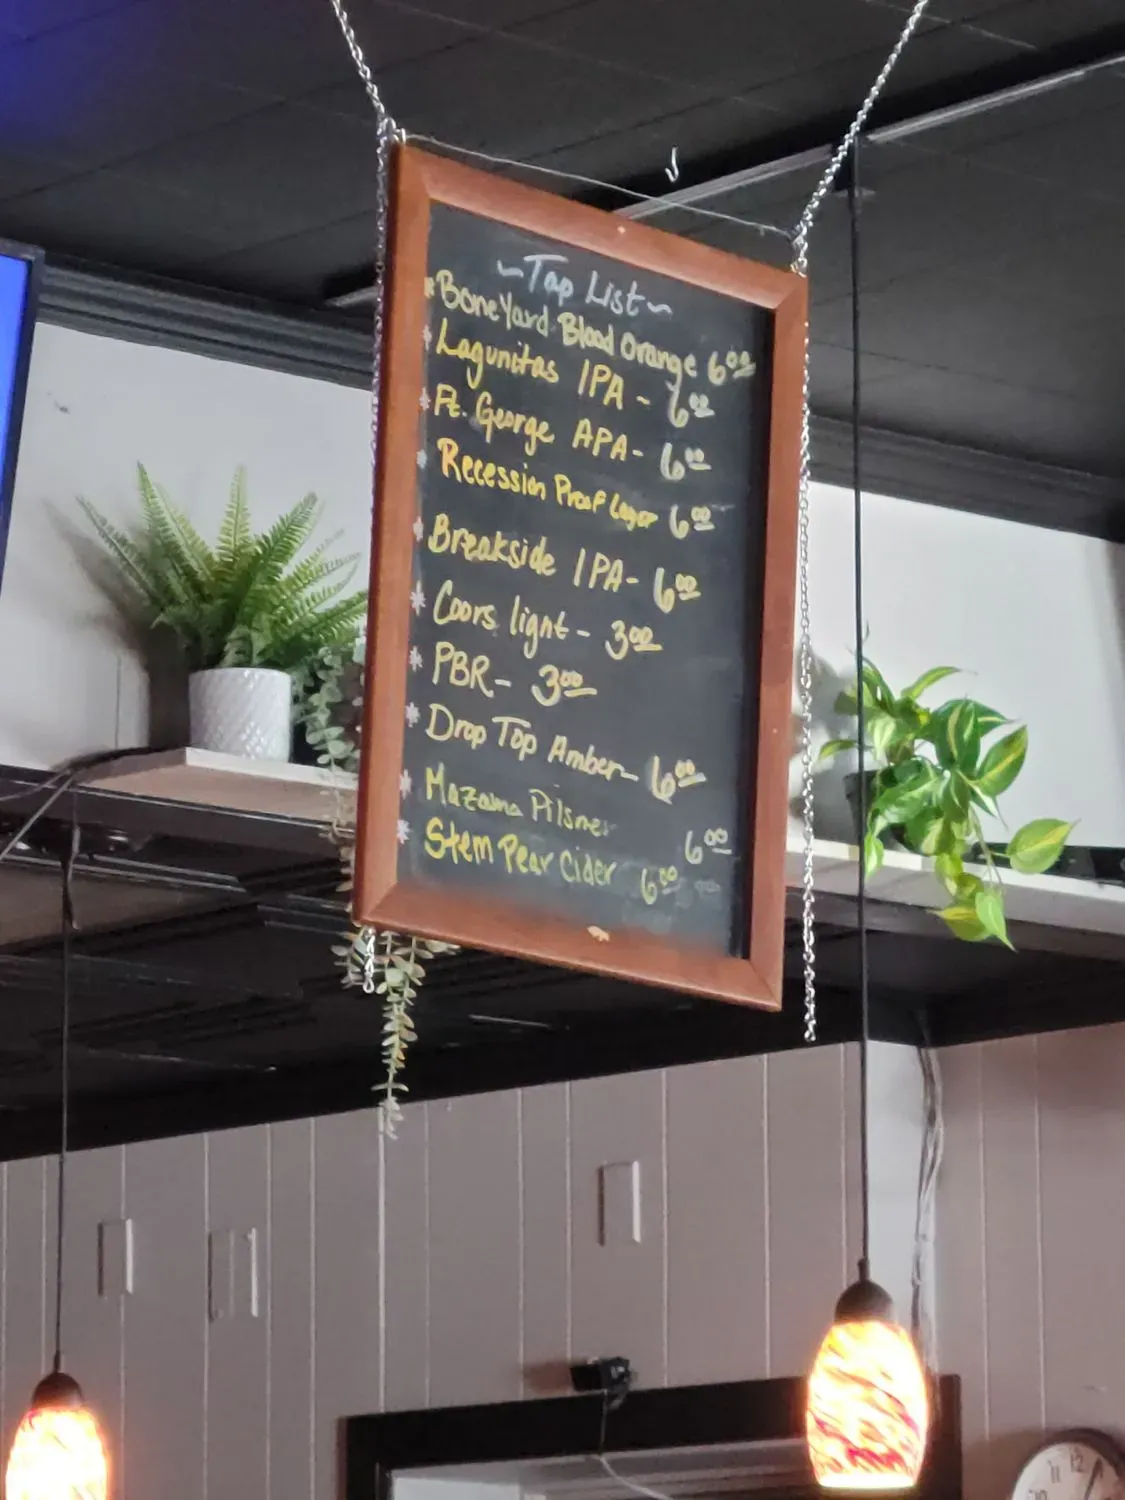 ~Tap List~
*BoneYard Blood Orange 6.00
* Lagunitas IPA - 6.00
* Ft. George APA - 6.00
* Recession Proof Lager 6.00
* Breakside IPA - 6.00
* Coors light - 3.00
* PBR - 3.00
* Drop Top Amber - 6.00
* Mazama Pilsner 6.00
* Stem Pear Cider 6.00
11 12 1